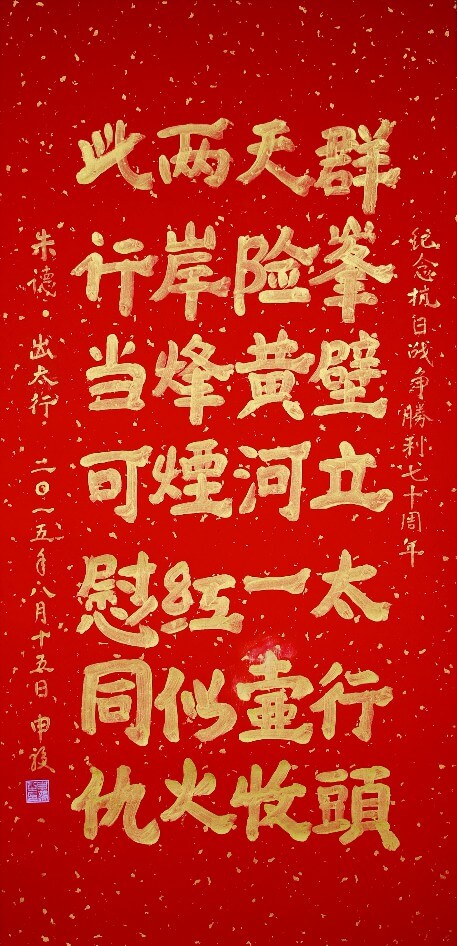 纪念抗日战争勝利七十周年
群峯壁立太行頭
天险黄河一壷收
两岸烽煙红似火
此行当可慰同仇
朱德·出太行 二〇一五年八月十五日 申